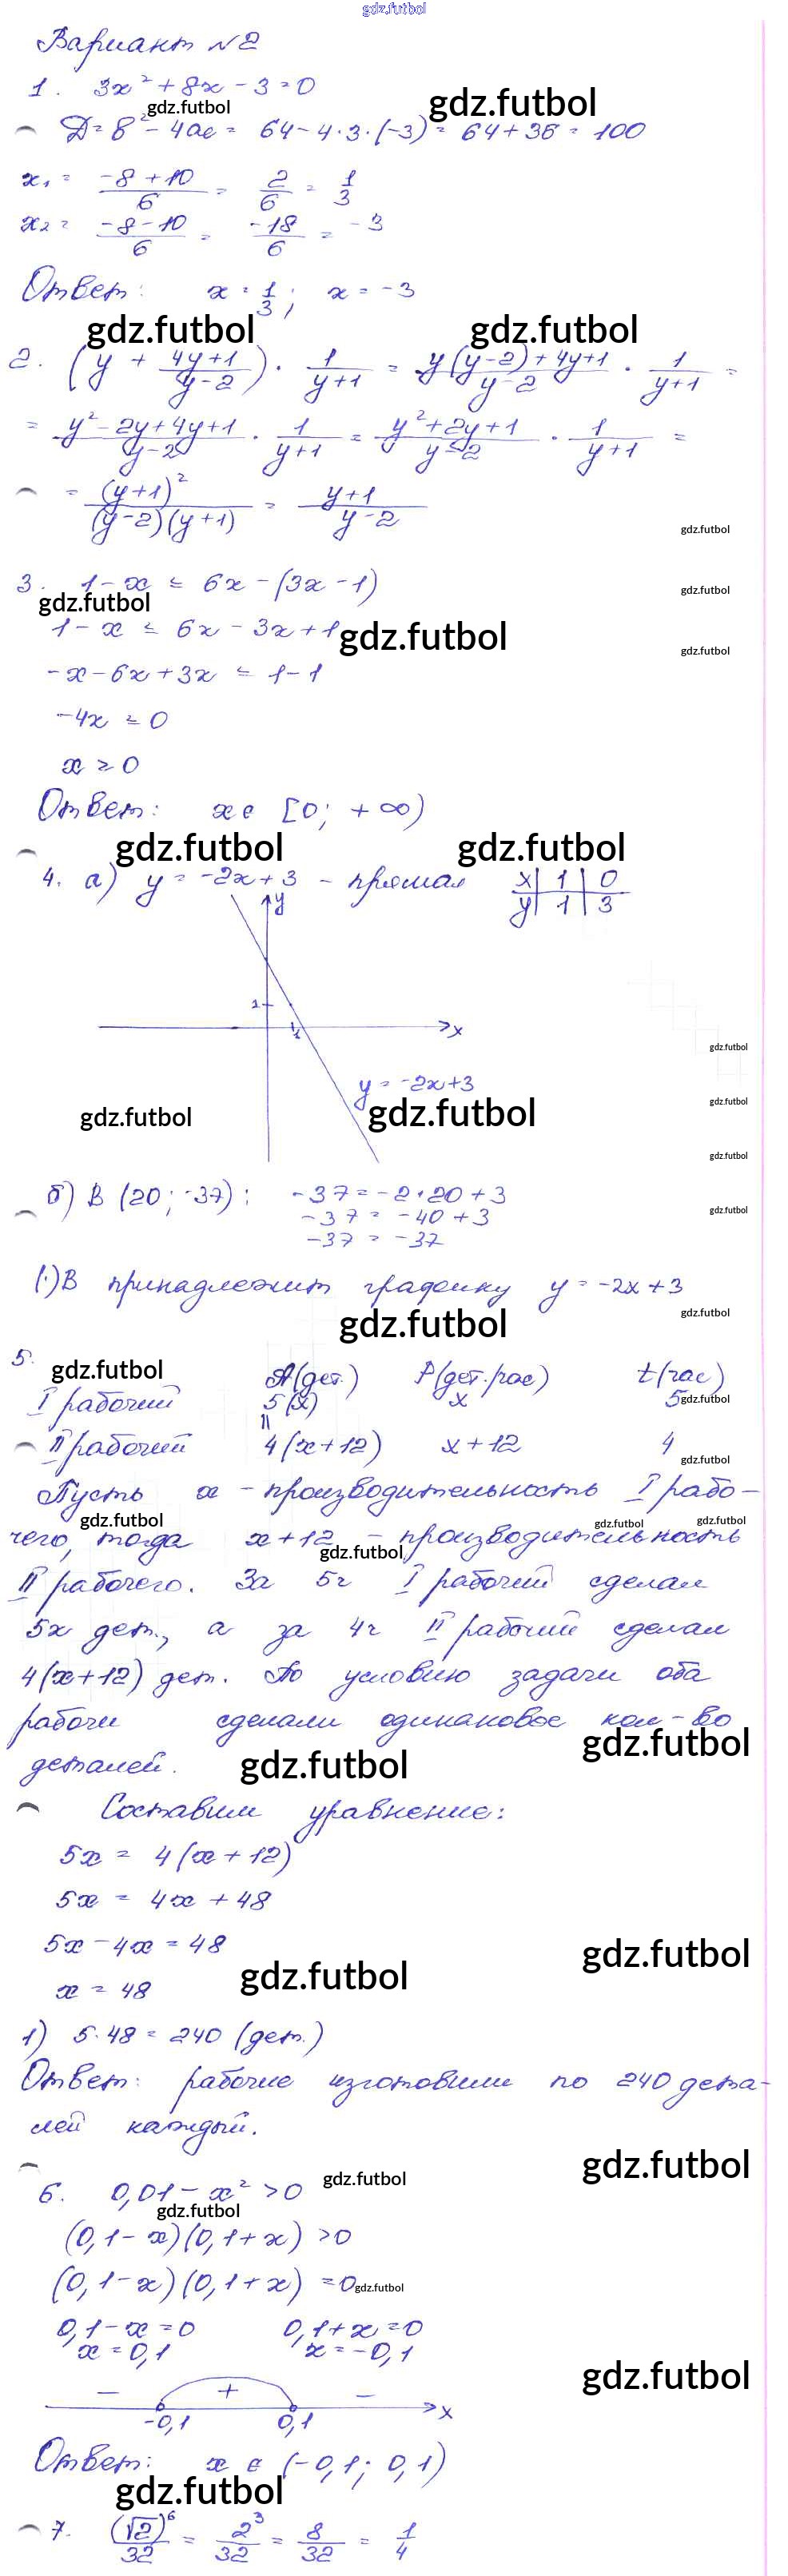 gdz.futbol
Вариант №2
1. 3x² + 8x - 3 = 0
gdz.futbol gdz.futbol
D = 8² - 4ac = 64 - 4·3·(-3) = 64 + 36 = 100
x₁ = (-8+10)/6 = 2/6 = 1/3
x₂ = (-8-10)/6 = -18/6 = -3
Ответ: x = 1/3; x = -3
gdz.futbol gdz.futbol
2. (y + (4y+1)/(y-2)) · 1/(y+1) = (y(y-2)+4y+1)/(y-2) · 1/(y+1) =
= (y²-2y+4y+1)/(y-2) · 1/(y+1) = (y²+2y+1)/(y-2) · 1/(y+1) =
= (y+1)²/((y-2)(y+1)) = (y+1)/(y-2)
gdz.futbol
3. 1 - x ≤ 6x - (3x - 1)
gdz.futbol gdz.futbol
1 - x ≤ 6x - 3x + 1
gdz.futbol gdz.futbol
-x - 6x + 3x ≤ 1 - 1
-4x ≤ 0
x ≥ 0
Ответ: x ∈ [0; +∞)
gdz.futbol gdz.futbol
4. а) y = -2x + 3 - прямая x | 1 | 0
y | 1 | 3
y
1
1 x
gdz.futbol
y = -2x+3
gdz.futbol gdz.futbol gdz.futbol
gdz.futbol
б) B (20; -37): -37 = -2·20 + 3
-37 = -40 + 3
gdz.futbol
-37 = -37
(·)B принадлежит графику y = -2x + 3
gdz.futbol gdz.futbol
5. A(дет.) P(дет.рас) t(час)
gdz.futbol
I рабочий 5(x) x 5
gdz.futbol
II рабочий 4(x+12) x+12 4
gdz.futbol
Пусть x - производительность I рабо-
gdz.futbol gdz.futbol gdz.futbol
чего, тогда x+12 - производительность
gdz.futbol
II рабочего. За 5ч I рабочий сделал
5x дет., а за 4ч II рабочий сделал
4(x+12) дет. По условию задачи оба
рабочи сделали одинаковое кол-во
gdz.futbol
деталей.
gdz.futbol
Составим уравнение:
5x = 4(x + 12)
5x = 4x + 48
5x - 4x = 48
gdz.futbol
x = 48
gdz.futbol
1) 5·48 = 240 (дет.)
Ответ: рабочие изготовили по 240 дета-
лей каждый.
gdz.futbol
6. 0,01 - x² > 0
gdz.futbol
gdz.futbol
(0,1 - x)(0,1 + x) > 0
(0,1 - x)(0,1 + x) = 0
gdz.futbol
0,1 - x = 0 0,1 + x = 0
x = 0,1 x = -0,1
gdz.futbol
- + - x
-0,1 0,1
Ответ: x ∈ (-0,1; 0,1)
gdz.futbol
7. (√2)⁶/32 = 2³/32 = 8/32 = 1/4